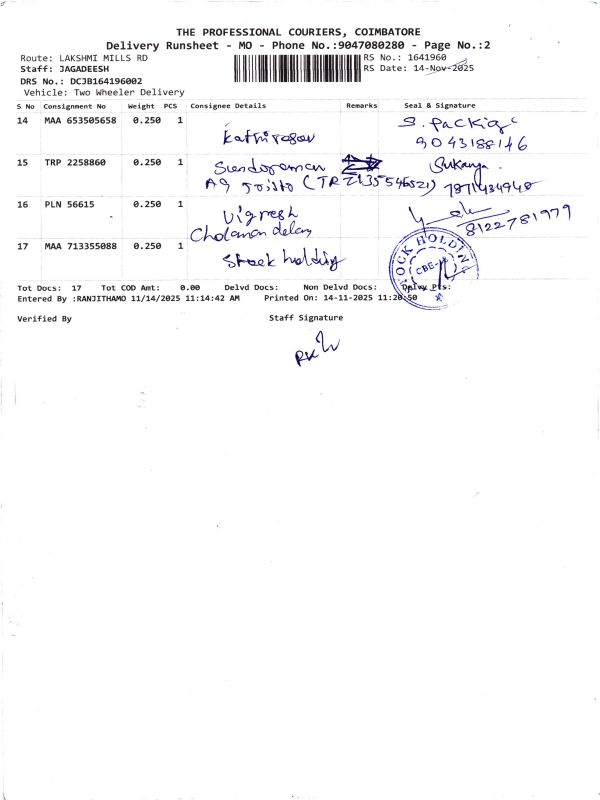 THE PROFESSIONAL COURIERS, COIMBATORE
Delivery Runsheet - MO - Phone No.:9047080280 - Page No.:2
Route: LAKSHMI MILLS RD
RS No.: 1641960
Staff: JAGADEESH
RS Date: 14-Nov-2025
DRS No.: DCJB164196002
Vehicle: Two Wheeler Delivery
S No Consignment No Weight PCS Consignee Details Remarks Seal & Signature
14 MAA 653505658 0.250 1 Kathiresan S. Packig
9043188146
15 TRP 2258860 0.250 1 Sundoraman Sukanya
7871434948
16 PLN 56615 0.250 1 Vignesh
8122781979
17 MAA 713355088 0.250 1 Stock holding
STOCK HOLDING
CBE
Tot Docs: 17 Tot COD Amt: 0.00 Delvd Docs: Non Delvd Docs: Delvy Pts:
Entered By :RANJITHAMO 11/14/2025 11:14:42 AM Printed On: 14-11-2025 11:20:50
Verified By Staff Signature